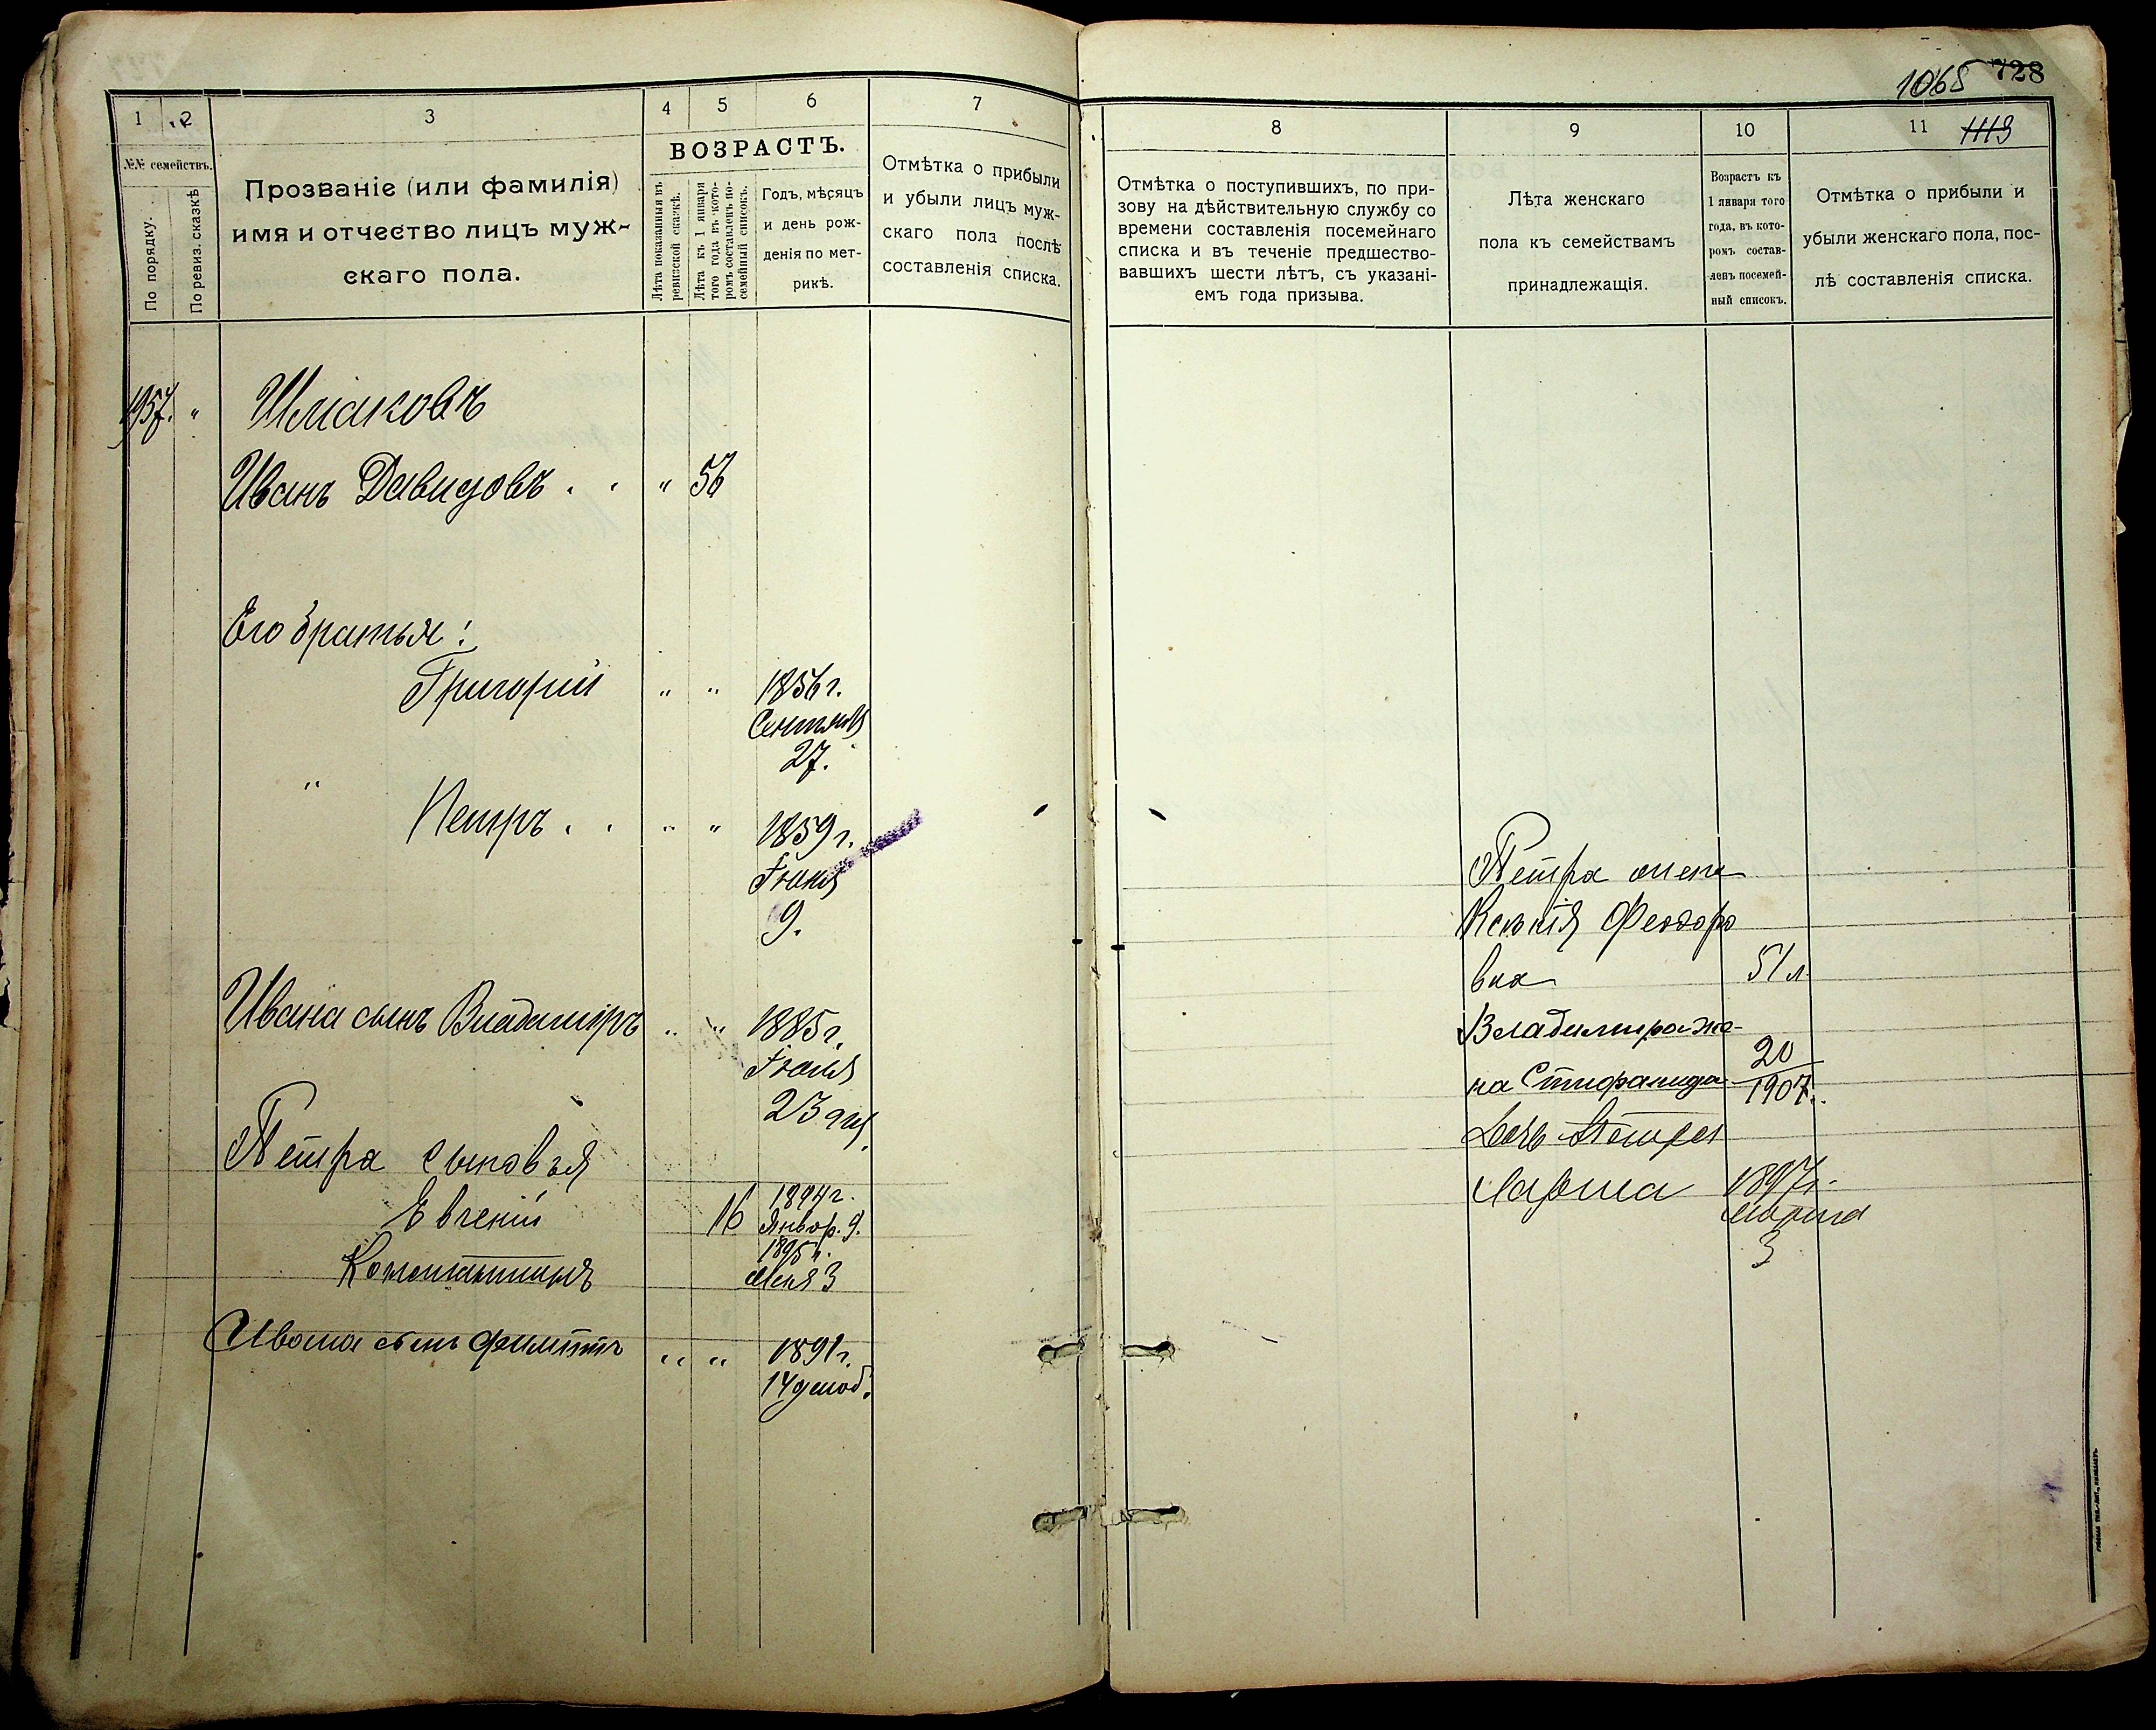 1065 728
1119
1 2 3 4 5 6 7
№№ семействъ.
По порядку.
По ревиз. сказкѣ
Прозваніе (или фамилія)
имя и отчество лицъ муж-
скаго пола.
ВОЗРАСТЪ.
Лѣта показанныя въ
ревизской сказкѣ.
Лѣта къ 1 января
того года въ кото-
ромъ составленъ по-
семейный списокъ.
Годъ, мѣсяцъ
и день рож-
денія по мет-
рикѣ.
Отмѣтка о прибыли
и убыли лицъ муж-
скаго пола послѣ
составленія списка.
1957. "
Ивань Давидовъ . . " 56
Его братья:
Григорій " " 1856 г.
Сентября
27.
" Петръ . . " " 1859 г.
Іюня
9.
Ивана сынъ Владиміръ " " 1885 г.
Іюля
23
Петра сыновья
Евгеній 16 1894 г.
Январ. 9.
Константинъ 1895 г.
3
Ивана сынъ " " 1891 г.
14
8 9 10 11
Отмѣтка о поступившихъ, по при-
зову на дѣйствительную службу со
времени составленія посемейнаго
списка и въ теченіе предшество-
вавшихъ шести лѣтъ, съ указані-
емъ года призыва.
Лѣта женскаго
пола къ семействамъ
принадлежащія.
Возрастъ къ
1 января того
года, въ кото-
ромъ состав-
ленъ посемей-
ный списокъ.
Отмѣтка о прибыли и
убыли женскаго пола, пос-
лѣ составленія списка.
Петра жена
Ксенія Феодоро
вна 51 л.
Владимира же-
на Стефанида 20
1907 г.
Дочь Петра
Лариса 1897 г.
Марта
3